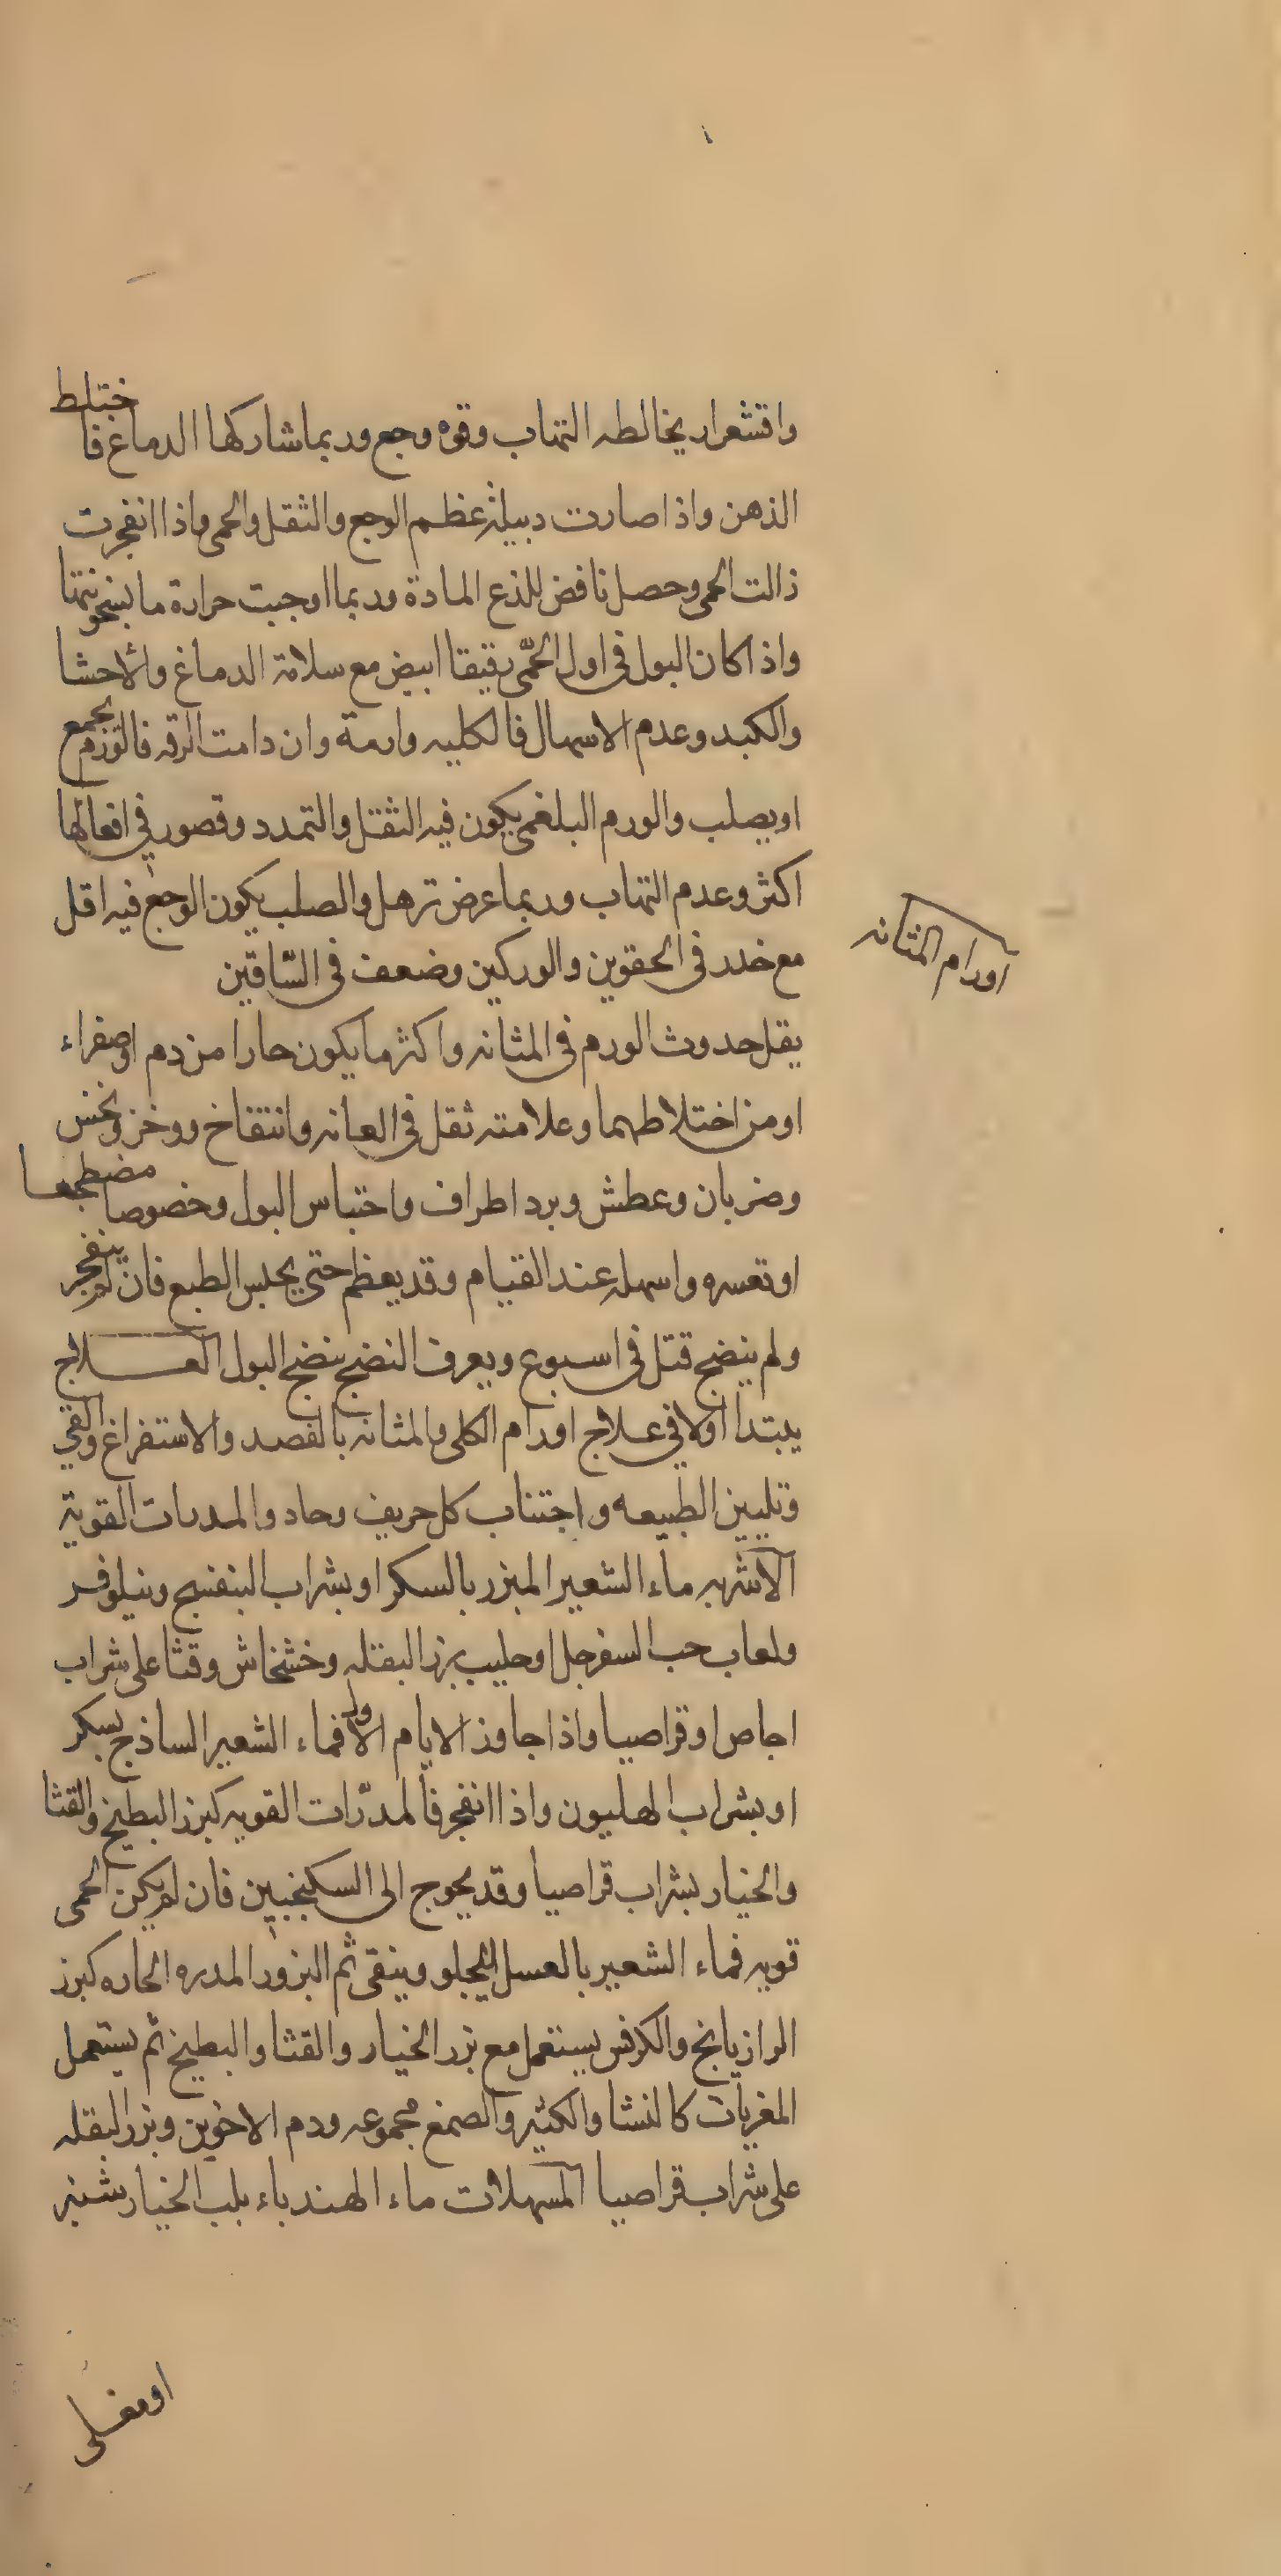 واقشعرار يخالطه التهاب وقوه وجع وربما شاركها الدماغ فاختلط
الذهن واذا صارت دبيلة عظم الوجع والثقل والحمى واذا انفجرت
زالت الحمى وحصل نافض للذع المادة وربما اوجبت حرارة ما بسخونتها
واذا كان البول في اول الحمّى رقيقا ابيض مع سلامة الدماغ والاحشا
والكبد وعدم الاسهال فالكليه وارمة وان دامت الرقه فالورم يجمع
او يصلب والورم البلغمي يكون فيه الثقل والتمدد وقصور في افعالها
اكثر وعدم التهاب وربما عرض ترهل والصلب يكون الوجع فيه اقل
مع خدر في الحقوين والوركين وضعف في السّاقين
اورام المثانه
يقل حدوث الورم في المثانه واكثر ما يكون حارا من دم او صفراء
او من اختلاطهما وعلامته ثقل في العانه وانتفاخ ووخز ونخس
وضربان وعطش وبرد اطراف واحتباس البول وخصوصا مضطجعا
او تعسره واسهله عند القيام وقد يعظم حتى يحبس الطبع فان لم ينفجر
ولم ينضج قتل في اسبوع ويعرف النضج بنضج البول العلاج
يبتدا اولا في علاج اورام الكلى والمثانه بالفصد والاستفراغ والقي
وتليين الطبيعه واجتناب كل حريف وحاد والمدرات القوية
الاشربه ماء الشعير المبزر بالسكر او بشراب البنفسج ونيلوفر
ولعاب حب السفرجل او حليب بزر البقله وخشخاش وقثا على شراب
اجاص او قراصيا واذا جاوز الايام الاول فماء الشعير الساذج بسكر
او بشراب الهليون واذا انفجر فالمدرّات القويه كبزر البطيخ والقثا
والخيار بشراب قراصيا وقد يحوج الى السكنجبين فان لم يكن الحمى
قويه فماء الشعير بالعسل ليجلو وينقي ثم البزور المدره الحاره كبزر
الرازيانج والكرفس يستعمل مع بزر الخيار والقثا والبطيخ ثم يستعمل
المغريات كالنشا والكثيره والصمغ مجموعه ودم الاخوين وبزر البقله
على شراب قراصيا المسهلات ماء الهندباء بلب الخيار شنبر
او مغلى